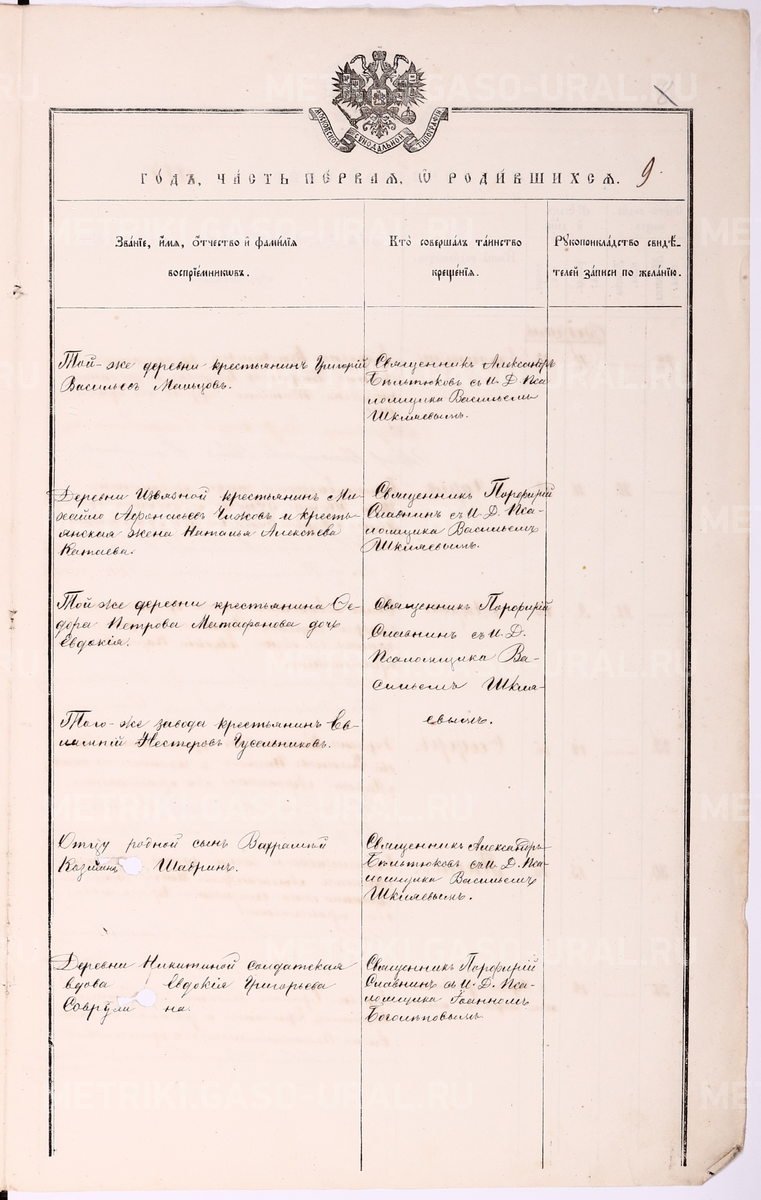 МОСКОВСКОЙ СѴНОДАЛЬНОЙ ТИПОГРАФІИ
ГО́ДЪ, ЧА́СТЬ ПЕ́РВАЯ, Ѡ҆ РОДИ́ВШИХСЯ. 9.
Зва́нїе, и҆́мя, ѻ҆́тчество и҆ фами́лїя
воспрїе́мникѡвъ.
Кто̀ соверша́лъ та́инство
креще́нїя.
Рꙋкоприкла́дство свидѣ́-
телей за́писи по жела́нїю.
Той-же деревни крестьянинъ Григорій
Васильевъ Мальцовъ.
Священникъ Александръ
Бѣльтюковъ съ И. Д. Пса-
ломщика Васильемъ
Шкляевымъ.
Деревни Извязной крестьянинъ Ми-
хайло Афонасьевъ Чижовъ и кресть-
янская жена Наталья Алексѣева
Катаева.
Священникъ Порфирій
Славнинъ съ И. Д. Пса-
ломщика Васильемъ
Шкляевымъ.
Той же деревни крестьянина Ѳе-
дора Петрова Матафонова дочь
Евдокія.
Священникъ Порфирій
Славнинъ съ И. Д.
Псаломщика Ва-
сильемъ Шкля-
евымъ.
Того-же завода крестьянинъ Ев-
лампій Нестеровъ Чусольниковъ.
Отцу родной сынъ Вахрамѣй
Козминъ Шавринъ.
Священникъ Александръ
Бѣльтюковъ съ И. Д. Пса-
ломщика Васильемъ
Шкляевымъ.
Деревни Никитиной солдатская
вдова Евдокія Григорьева
на.
Священникъ Порфирій
Славнинъ съ И. Д. Пса-
ломщика Іоанномъ
Боголѣповымъ.
METRIKI.GASO-URAL.RU